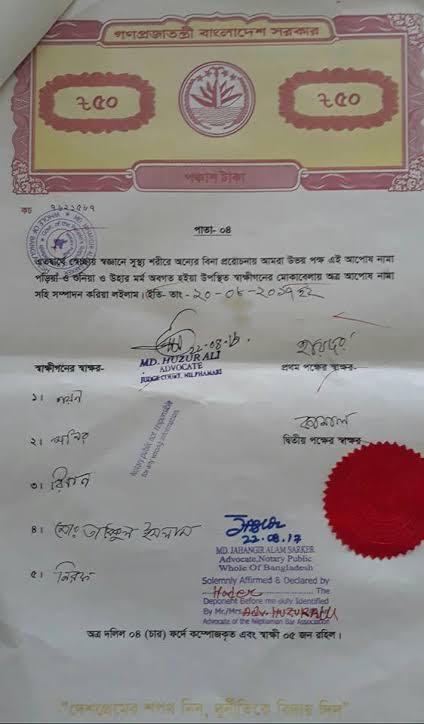 গণপ্রজাতন্ত্রী বাংলাদেশ সরকার
৳৫০ ৳৫০
পঞ্চাশ টাকা
কচ ৭৬২১৫৮৭
পাতা- ০৪
এতদ্বার্থে স্বেচ্ছায় স্বজ্ঞানে সুস্থ্য শরীরে অন্যের বিনা প্ররোচনায় আমরা উভয় পক্ষ এই আপোষ নামা
পড়িয়া ও শুনিয়া ও উহার মর্ম অবগত হইয়া উপস্থিত স্বাক্ষীগনের মোকাবেলায় অত্র আপোষ নামা
সহি সম্পাদন করিয়া লইলাম। ইতি- তাং-
MD. HUZUR ALI
ADVOCATE
JUDGE COURT, NILPHAMARI
স্বাক্ষীগনের স্বাক্ষর-
প্রথম পক্ষের স্বাক্ষর-
১।
Notary public not responsible
for any wrong information
২।
দ্বিতীয় পক্ষের স্বাক্ষর-
৩।
৪। মোঃ ইসলাম
22.08.17
MD. JAHANGIR ALAM SARKER
Advocate, Notary Public
Whole Of Bangladesh
Solemnly Affirmed & Declared by
The
Deponent Before me duly Identified
By Mr./Mrs. Adv. HUZUR ALI
Advocate of the Nilphamari Bar Association
৫।
অত্র দলিল ০৪ (চার) ফর্দে কম্পোজকৃত এবং স্বাক্ষী ০৫ জন রহিল।
"দেশপ্রেমের শপথ নিন, দুর্নীতিকে বিদায় দিন"